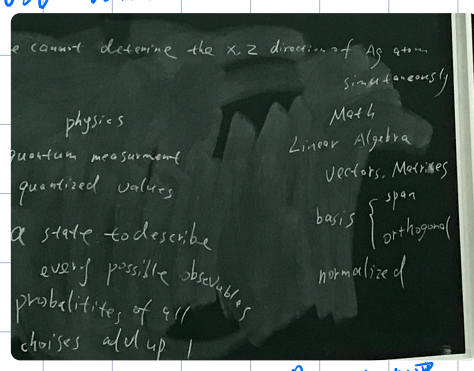 e cannot detemine the x, z direction of Ag atom
simutaneously
physics
quantum measurment
quantized values
a state to describe
every possible obsevables
probalitites of all
choises add up 1
Math
Linear Algebra
Vectors, Matrixes
basis { span
orthogonal
normalized